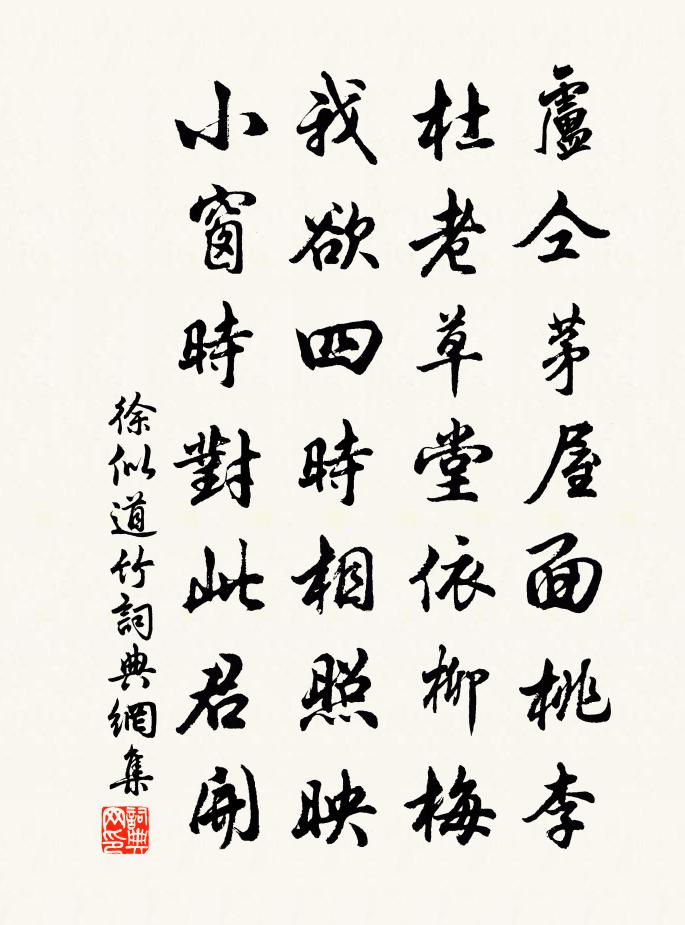 盧仝茅屋面桃李
杜老草堂依柳梅
我欲四時相照映
小窗時對此君開
徐似道竹詞典網集
詞典
网印